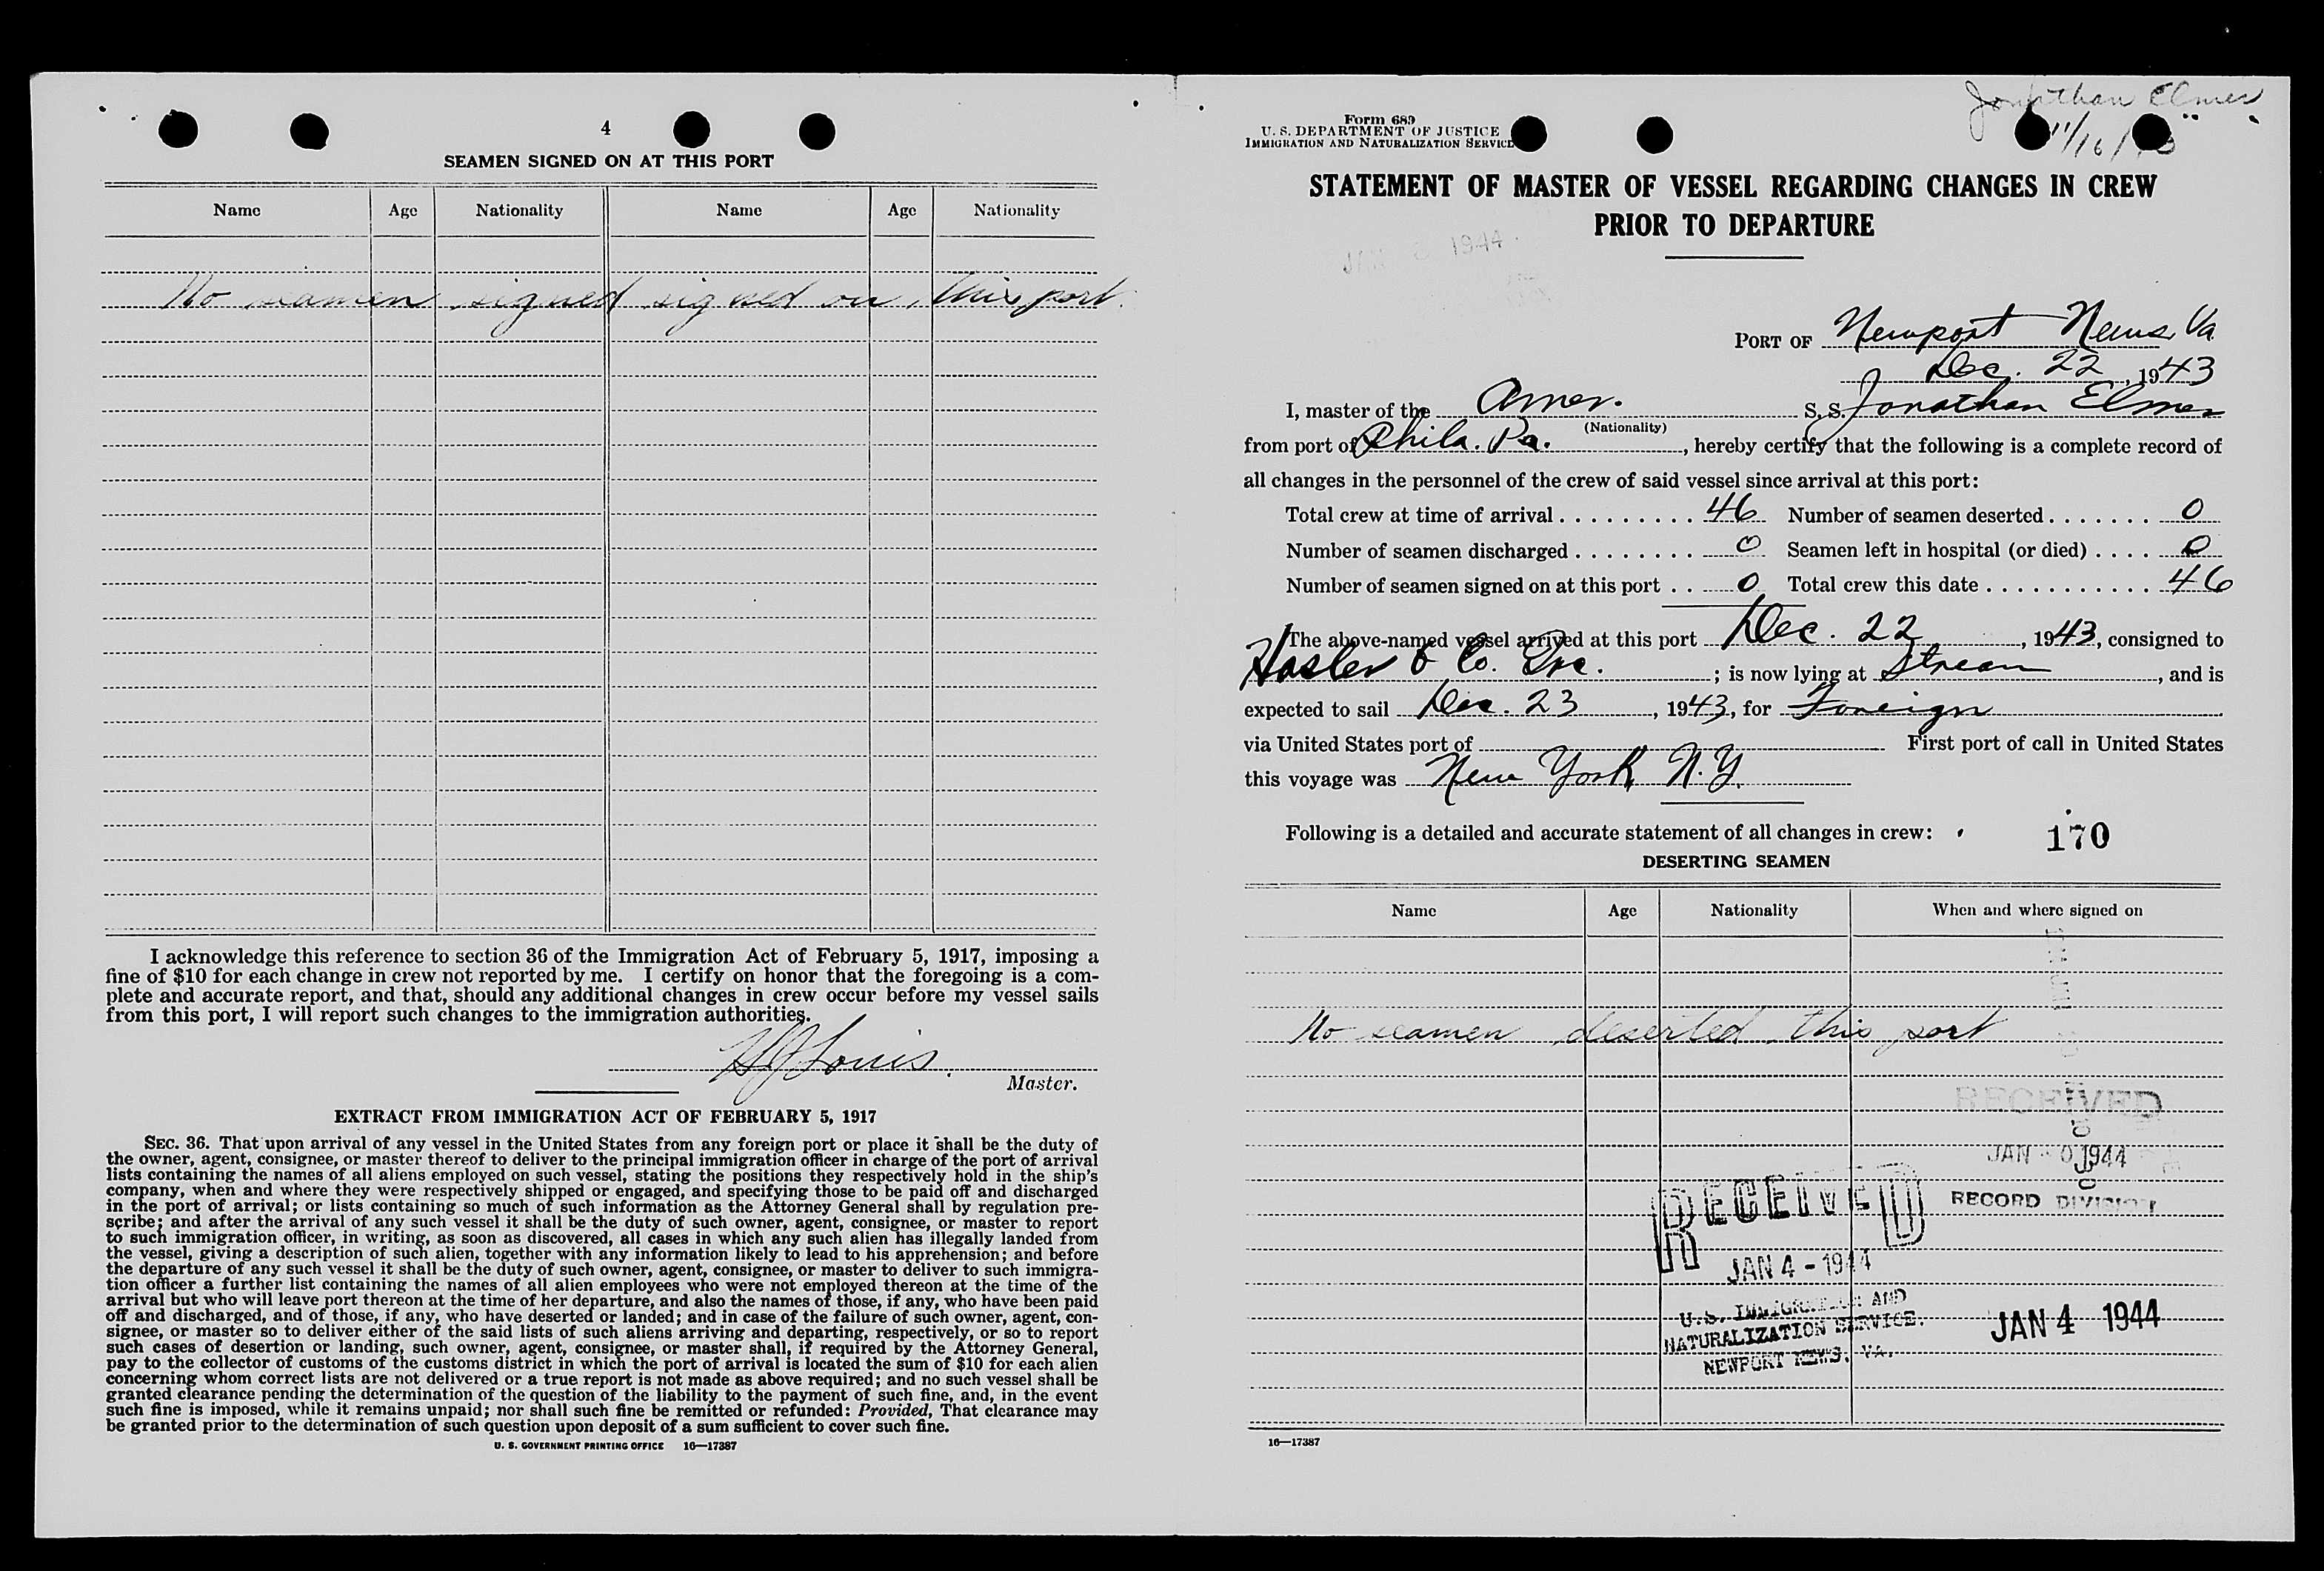 4
SEAMEN SIGNED ON AT THIS PORT
Name Age Nationality Name Age Nationality
No seamen signed signed on this port.
I acknowledge this reference to section 36 of the Immigration Act of February 5, 1917, imposing a
fine of $10 for each change in crew not reported by me. I certify on honor that the foregoing is a com-
plete and accurate report, and that, should any additional changes in crew occur before my vessel sails
from this port, I will report such changes to the immigration authorities.
Louis
Master.
EXTRACT FROM IMMIGRATION ACT OF FEBRUARY 5, 1917
SEC. 36. That upon arrival of any vessel in the United States from any foreign port or place it shall be the duty of
the owner, agent, consignee, or master thereof to deliver to the principal immigration officer in charge of the port of arrival
lists containing the names of all aliens employed on such vessel, stating the positions they respectively hold in the ship's
company, when and where they were respectively shipped or engaged, and specifying those to be paid off and discharged
in the port of arrival; or lists containing so much of such information as the Attorney General shall by regulation pre-
scribe; and after the arrival of any such vessel it shall be the duty of such owner, agent, consignee, or master to report
to such immigration officer, in writing, as soon as discovered, all cases in which any such alien has illegally landed from
the vessel, giving a description of such alien, together with any information likely to lead to his apprehension; and before
the departure of any such vessel it shall be the duty of such owner, agent, consignee, or master to deliver to such immigra-
tion officer a further list containing the names of all alien employees who were not employed thereon at the time of the
arrival but who will leave port thereon at the time of her departure, and also the names of those, if any, who have been paid
off and discharged, and of those, if any, who have deserted or landed; and in case of the failure of such owner, agent, con-
signee, or master so to deliver either of the said lists of such aliens arriving and departing, respectively, or so to report
such cases of desertion or landing, such owner, agent, consignee, or master shall, if required by the Attorney General,
pay to the collector of customs of the customs district in which the port of arrival is located the sum of $10 for each alien
concerning whom correct lists are not delivered or a true report is not made as above required; and no such vessel shall be
granted clearance pending the determination of the question of the liability to the payment of such fine, and, in the event
such fine is imposed, while it remains unpaid; nor shall such fine be remitted or refunded: Provided, That clearance may
be granted prior to the determination of such question upon deposit of a sum sufficient to cover such fine.
U. S. GOVERNMENT PRINTING OFFICE 16—17387
Jonathan Elmer
Form 689
U. S. DEPARTMENT OF JUSTICE
IMMIGRATION AND NATURALIZATION SERVICE
STATEMENT OF MASTER OF VESSEL REGARDING CHANGES IN CREW
PRIOR TO DEPARTURE
1944
PORT OF Newport News, Va.
Dec. 22, 1943
I, master of the Amer. S. S. Jonathan Elmer
(Nationality)
from port of Phila. Pa., hereby certify that the following is a complete record of
all changes in the personnel of the crew of said vessel since arrival at this port:
Total crew at time of arrival 46 Number of seamen deserted 0
Number of seamen discharged 0 Seamen left in hospital (or died) 0
Number of seamen signed on at this port 0 Total crew this date 46
The above-named vessel arrived at this port Dec. 22, 1943, consigned to
Hasler & Co. Inc.; is now lying at Stream, and is
expected to sail Dec. 23, 1943, for Foreign
via United States port of First port of call in United States
this voyage was New York, N.Y.
Following is a detailed and accurate statement of all changes in crew:
170
DESERTING SEAMEN
Name Age Nationality When and where signed on
No seamen deserted this port
RECEIVED
JAN 1944
RECORD DIVISION
RECEIVED
JAN 4 - 1944
U.S. IMMIGRATION AND
NATURALIZATION SERVICE.
NEWPORT NEWS, VA.
JAN 4 1944
16—17387